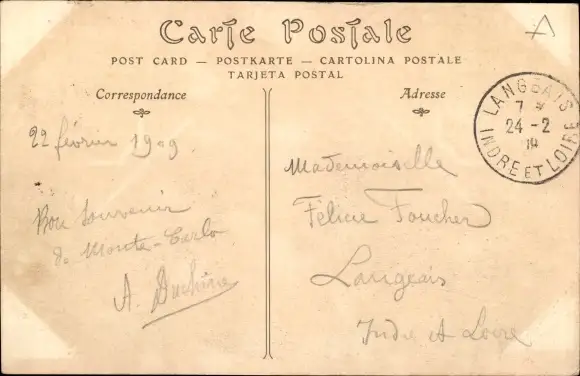 Carte Postale
POST CARD — POSTKARTE — CARTOLINA POSTALE
TARJETA POSTAL
Correspondance
Adresse
22 février 1909
Bon souvenir
de Monte-Carlo
A.
Mademoiselle
Félicie Foucher
Langeais
Indre et Loire
LANGEAIS
7
24 - 2
INDRE ET LOIRE
A